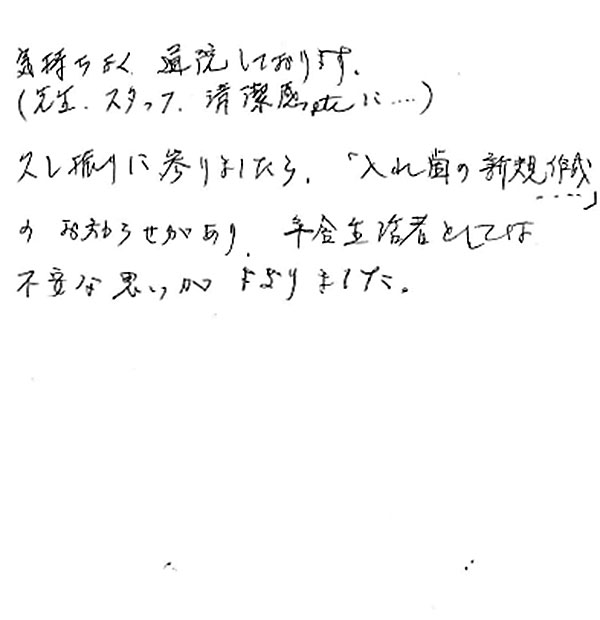 気持ちよく 通院しております。
(先生、スタッフ、清潔感etcに....)
久し振りに参りましたら、「入れ歯の新規作成
....」
のお知らせがあり、年金生活者としては
不安な思いが よぎりました。